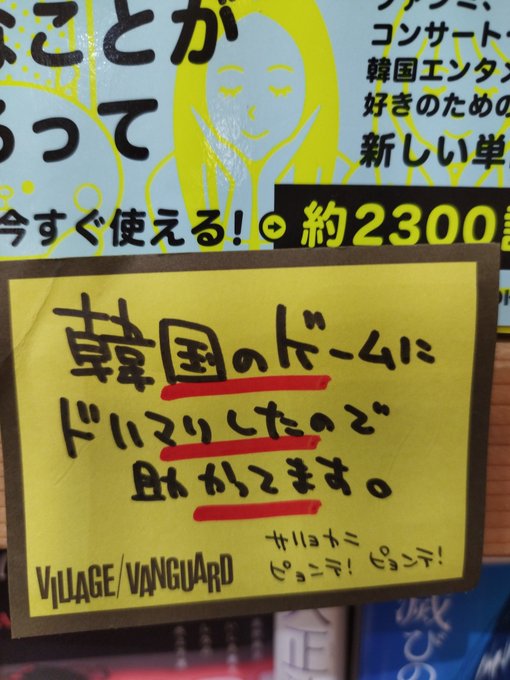 なことが
って
ファンミ、
コンサート
韓国エンタメ
好きのための
新しい単
今すぐ使える!
約2300
韓国のゲームに
ドハマりしたので
助かってます。
ピョンテ! ピョンテ!
VILLAGE/VANGUARD
大正
滅びの